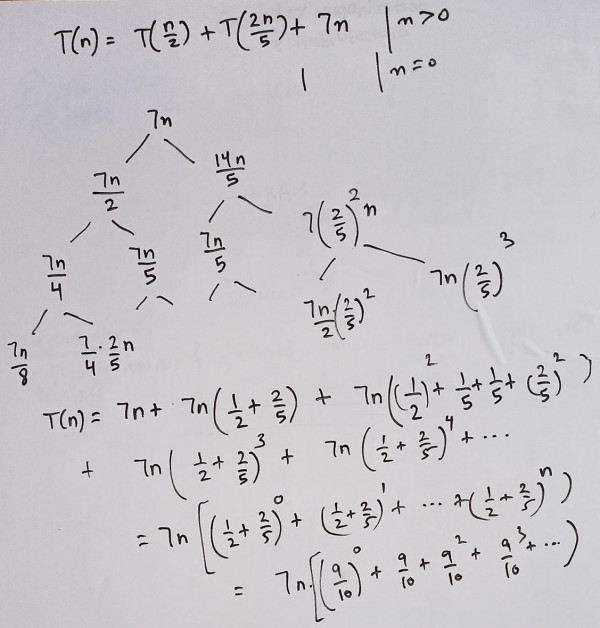 T(n) = T(n/2) + T(2n/5) + 7n | n>0
1 | n=0
7n
7n/2 14n/5
7n/4 7n/5 7n/5 7(2/5)^2 n
7n/8 7/4 · 2/5 n 7n/2 (2/5)^2 7n(2/5)^3
T(n) = 7n + 7n(1/2 + 2/5) + 7n((1/2)^2 + 1/5 + 1/5 + (2/5)^2)
+ 7n(1/2 + 2/5)^3 + 7n(1/2 + 2/5)^4 + ...
= 7n[(1/2 + 2/5)^0 + (1/2 + 2/5)^1 + ... + (1/2 + 2/5)^n)
= 7n·[(9/10)^0 + 9/10 + 9/10^2 + 9/10^3 + ...)